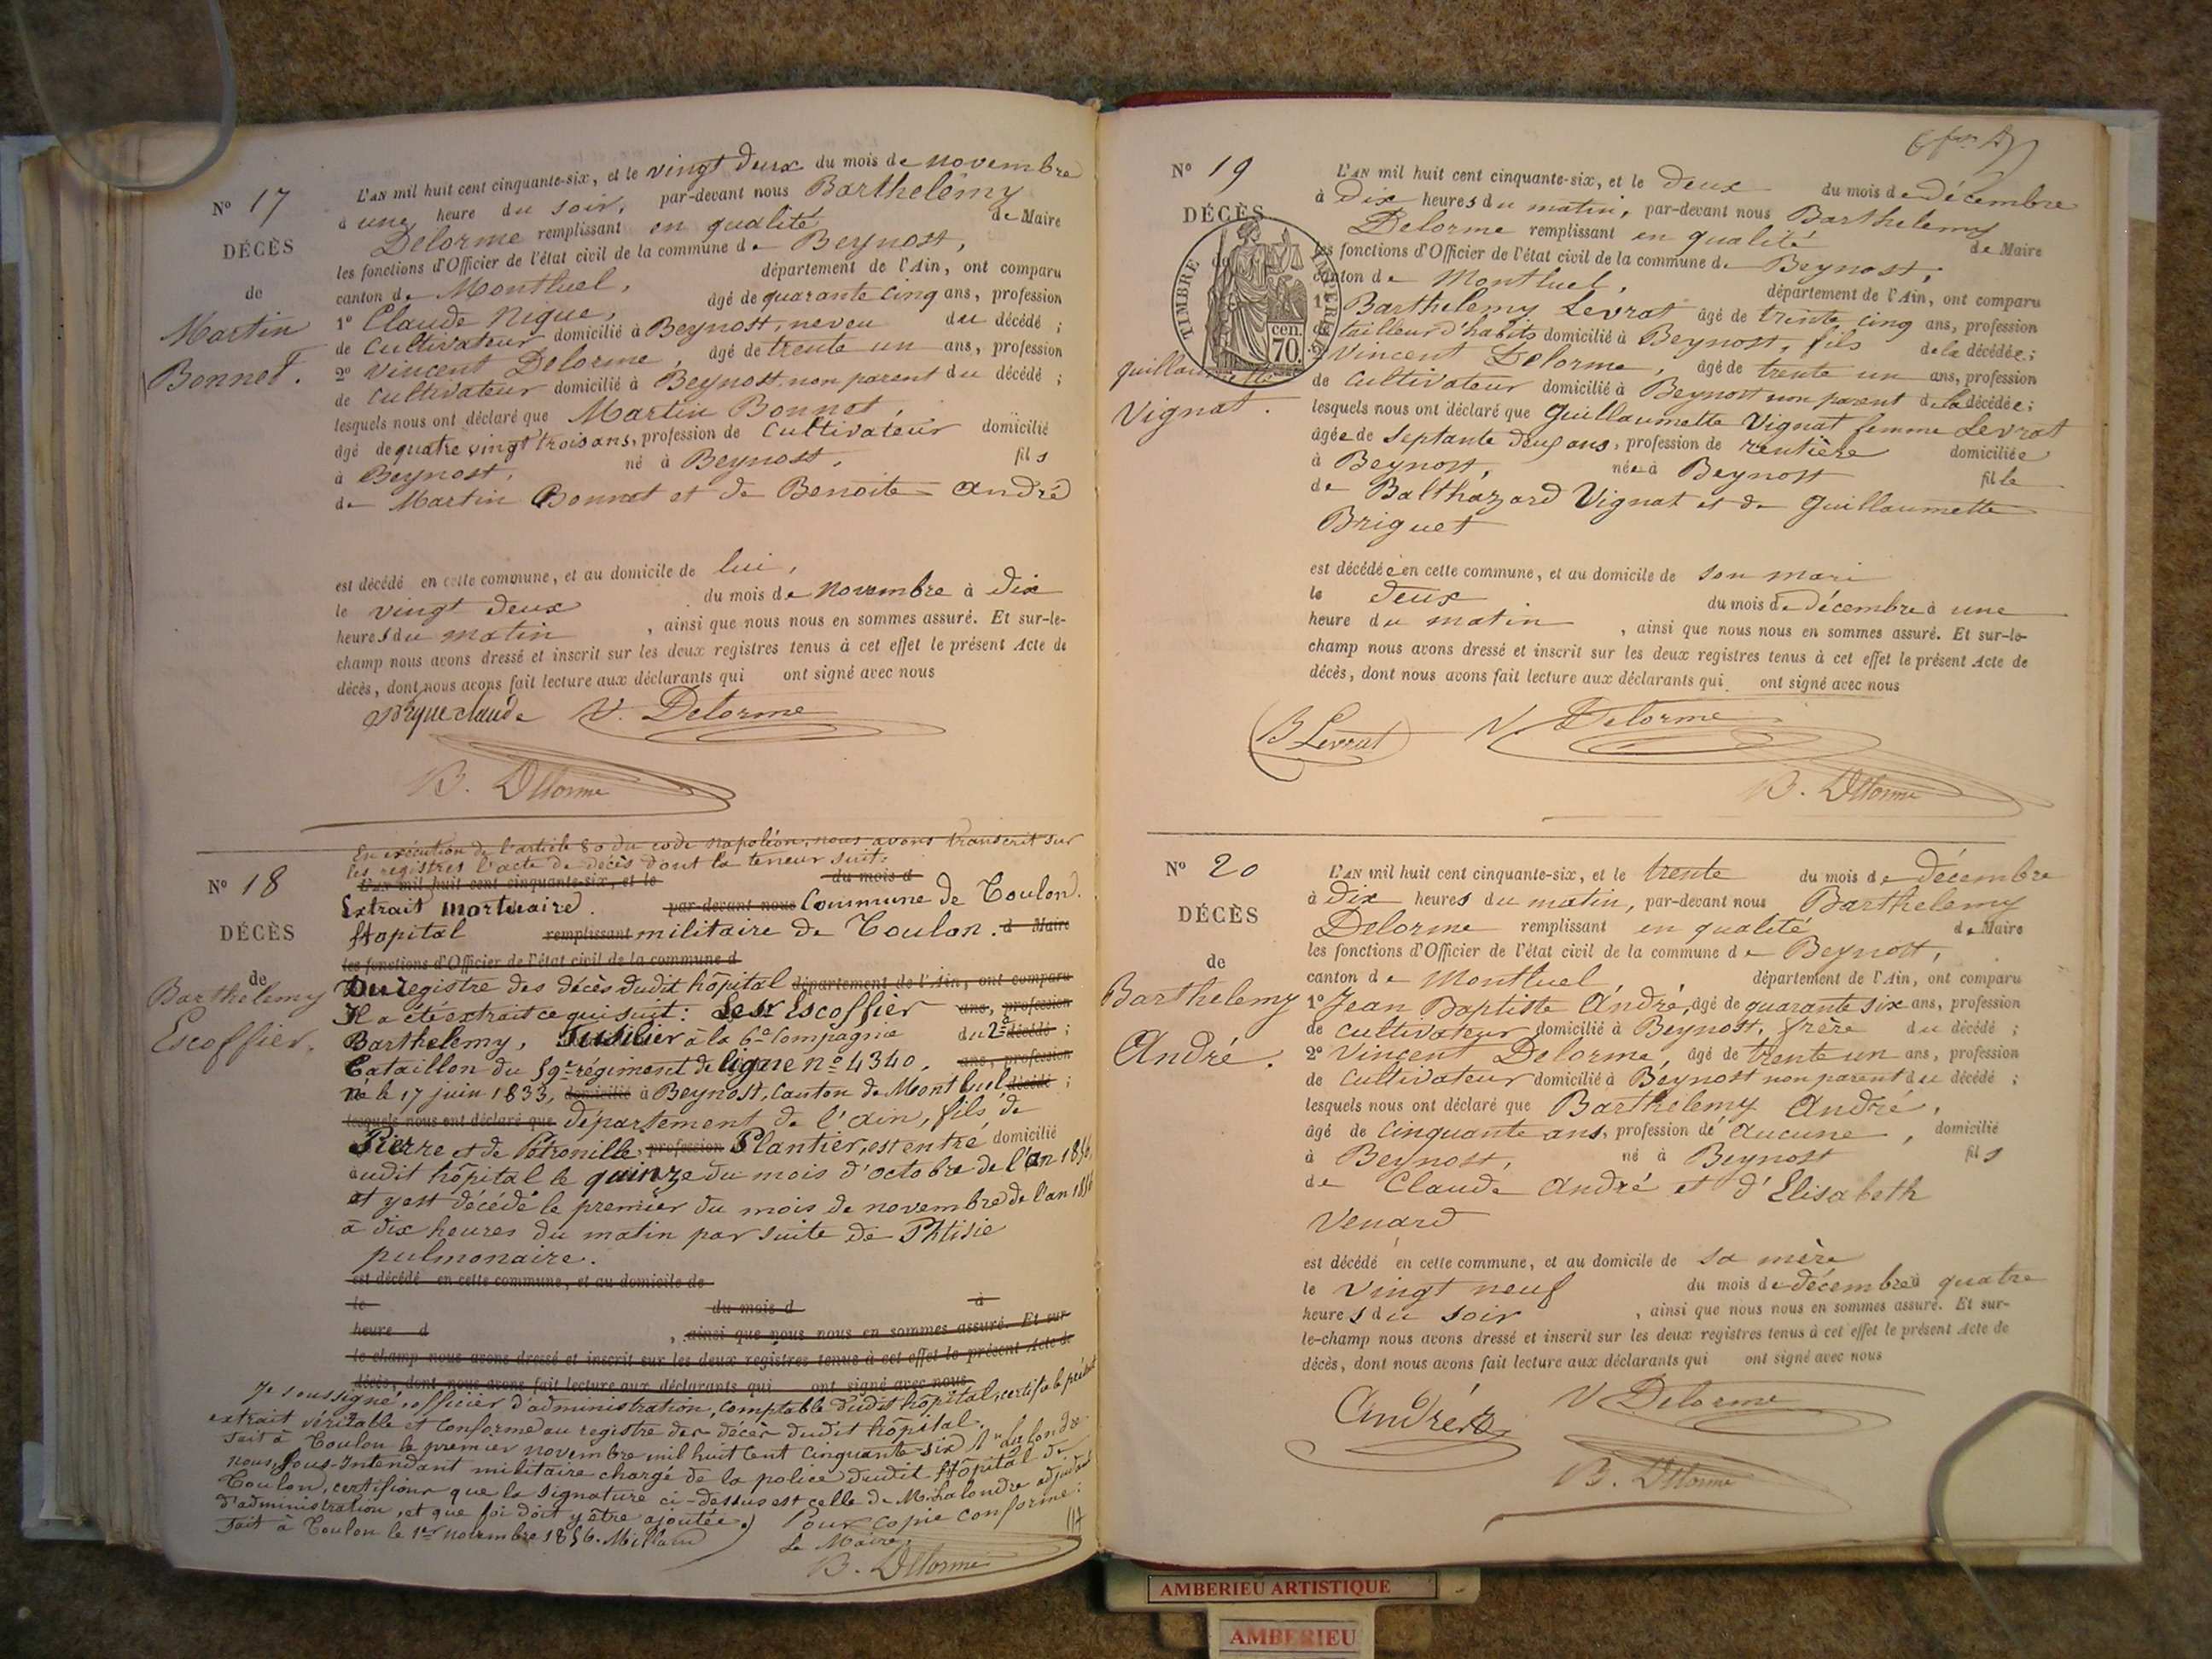 N° 17
DÉCÈS
de
Martin
Bonnet.
L'AN mil huit cent cinquante-six, et le vingt deux du mois de novembre
à une heure du soir, par-devant nous Barthelémy
Delorme remplissant en qualité de Maire
les fonctions d'Officier de l'état civil de la commune de Beynost,
canton de Montluel, département de l'Ain, ont comparu
1° Claude Nique, âgé de quarante cinq ans, profession
de cultivateur domicilié à Beynost, neveu du décédé ;
2° Vincent Delorme, âgé de trente un ans, profession
de cultivateur domicilié à Beynost non parent du décédé ;
lesquels nous ont déclaré que Martin Bonnet,
âgé de quatre vingt trois ans, profession de cultivateur domicilié
à Beynost, né à Beynost, fils
de Martin Bonnet et de Benoite André
est décédé en cette commune, et au domicile de lui,
le vingt deux du mois de novembre à dix
heures du matin, ainsi que nous nous en sommes assuré. Et sur-le-
champ nous avons dressé et inscrit sur les deux registres tenus à cet effet le présent Acte de
décès, dont nous avons fait lecture aux déclarants qui ont signé avec nous
Nique claude V. Delorme
B. Delorme
N° 18
DÉCÈS
de
Barthelemy
Escoffier.
En exécution de l'article 80 du code napoléon, nous avons transcrit sur
les registres l'acte de décès dont la teneur suit:
L'AN mil huit cent cinquante-six, et le du mois d
Extrait mortuaire. par-devant nous Commune de Toulon.
Hopital remplissant militaire de Toulon. d Maire
les fonctions d'Officier de l'état civil de la commune d
Du registre des décès dudit hôpital département de l'Ain, ont comparu
Il a été extrait ce qui suit: Le Sr Escoffier ans, profession
Barthelemy, Fusilier à la 6e Compagnie du 2e décédé ;
Bataillon du 59e régiment de ligne n° 4340, ans, profession
né le 17 juin 1833, domicilié à Beynost, Canton de Montluel décédé ;
lesquels nous ont déclaré que département de l'ain, fils de
Pierre et de Pétronille profession Plantier, est entré domicilié
audit hôpital le quinze du mois d'octobre de l'an 1856,
et y est décédé le premier du mois de novembre de l'an 1856
à dix heures du matin par suite de Phtisie
pulmonaire.
est décédé en cette commune, et au domicile de
le du mois d à
heure d , ainsi que nous nous en sommes assuré. Et sur
le champ nous avons dressé et inscrit sur les deux registres tenus à cet effet le présent Acte de
décès, dont nous avons fait lecture aux déclarants qui ont signé avec nous
Je soussigné, officier d'administration, comptable dudit hôpital, certifie le présent
extrait véritable et conforme au registre des décès dudit hôpital.
Fait à Toulon le premier novembre mil huit cent cinquante-six Lalondre
nous, Sous-Intendant militaire chargé de la police dudit Hôpital de
Toulon, certifions que la signature ci-dessus est celle de M. Lalondre adjudant
d'administration, et que foi doit y être ajoutée.
Fait à Toulon le 1er novembre 1856. Pour copie conforme:
Le Maire,
B. Delorme
N° 19
DÉCÈS
TIMBRE IMPERIAL
cen.
70.
Vignat.
L'AN mil huit cent cinquante-six, et le deux du mois de décembre
à dix heures du matin, par-devant nous Barthelemy
Delorme remplissant en qualité de Maire
les fonctions d'Officier de l'état civil de la commune de Beynost,
canton de Montluel, département de l'Ain, ont comparu
1° Barthelemy Levrat âgé de trente cinq ans, profession
de tailleur d'habits domicilié à Beynost, fils de la décédée ;
2° Vincent Delorme, âgé de trente un ans, profession
de cultivateur domicilié à Beynost non parent de la décédée ;
lesquels nous ont déclaré que Guillaumette Vignat femme Levrat
âgée de septante deux ans, profession de rentière domiciliée
à Beynost, née à Beynost fille
de Balthazard Vignat et de Guillaumette
Briguet
est décédée en cette commune, et au domicile de son mari
le deux du mois de décembre à une
heure du matin, ainsi que nous nous en sommes assuré. Et sur-le-
champ nous avons dressé et inscrit sur les deux registres tenus à cet effet le présent Acte de
décès, dont nous avons fait lecture aux déclarants qui ont signé avec nous
B Levrat V. Delorme
B. Delorme
N° 20
DÉCÈS
de
Barthelemy
André.
L'AN mil huit cent cinquante-six, et le trente du mois de décembre
à dix heures du matin, par-devant nous Barthelemy
Delorme remplissant en qualité de Maire
les fonctions d'Officier de l'état civil de la commune de Beynost,
canton de Montluel département de l'Ain, ont comparu
1° Jean Baptiste André, âgé de quarante six ans, profession
de cultivateur domicilié à Beynost, frère du décédé ;
2° Vincent Delorme, âgé de trente un ans, profession
de cultivateur domicilié à Beynost non parent du décédé ;
lesquels nous ont déclaré que Barthélemy André,
âgé de cinquante ans, profession de aucune, domicilié
à Beynost, né à Beynost fils
de Claude André et d'Elisabeth
Venard
est décédé en cette commune, et au domicile de sa mère
le vingt neuf du mois de décembre à quatre
heures du soir, ainsi que nous nous en sommes assuré. Et sur-
le-champ nous avons dressé et inscrit sur les deux registres tenus à cet effet le présent Acte de
décès, dont nous avons fait lecture aux déclarants qui ont signé avec nous
André V Delorme
B. Delorme
AMBERIEU ARTISTIQUE
AMBERIEU